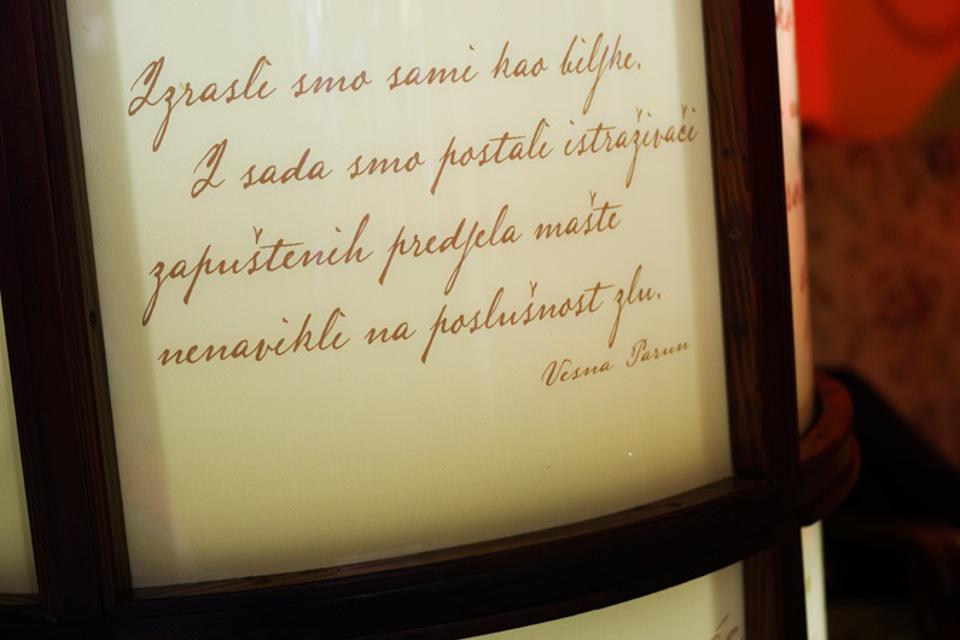 Izrasli smo sami kao biljke.
I sada smo postali istraživači
zapuštenih predjela mašte
nenavikli na poslušnost zlu.
Vesna Parun